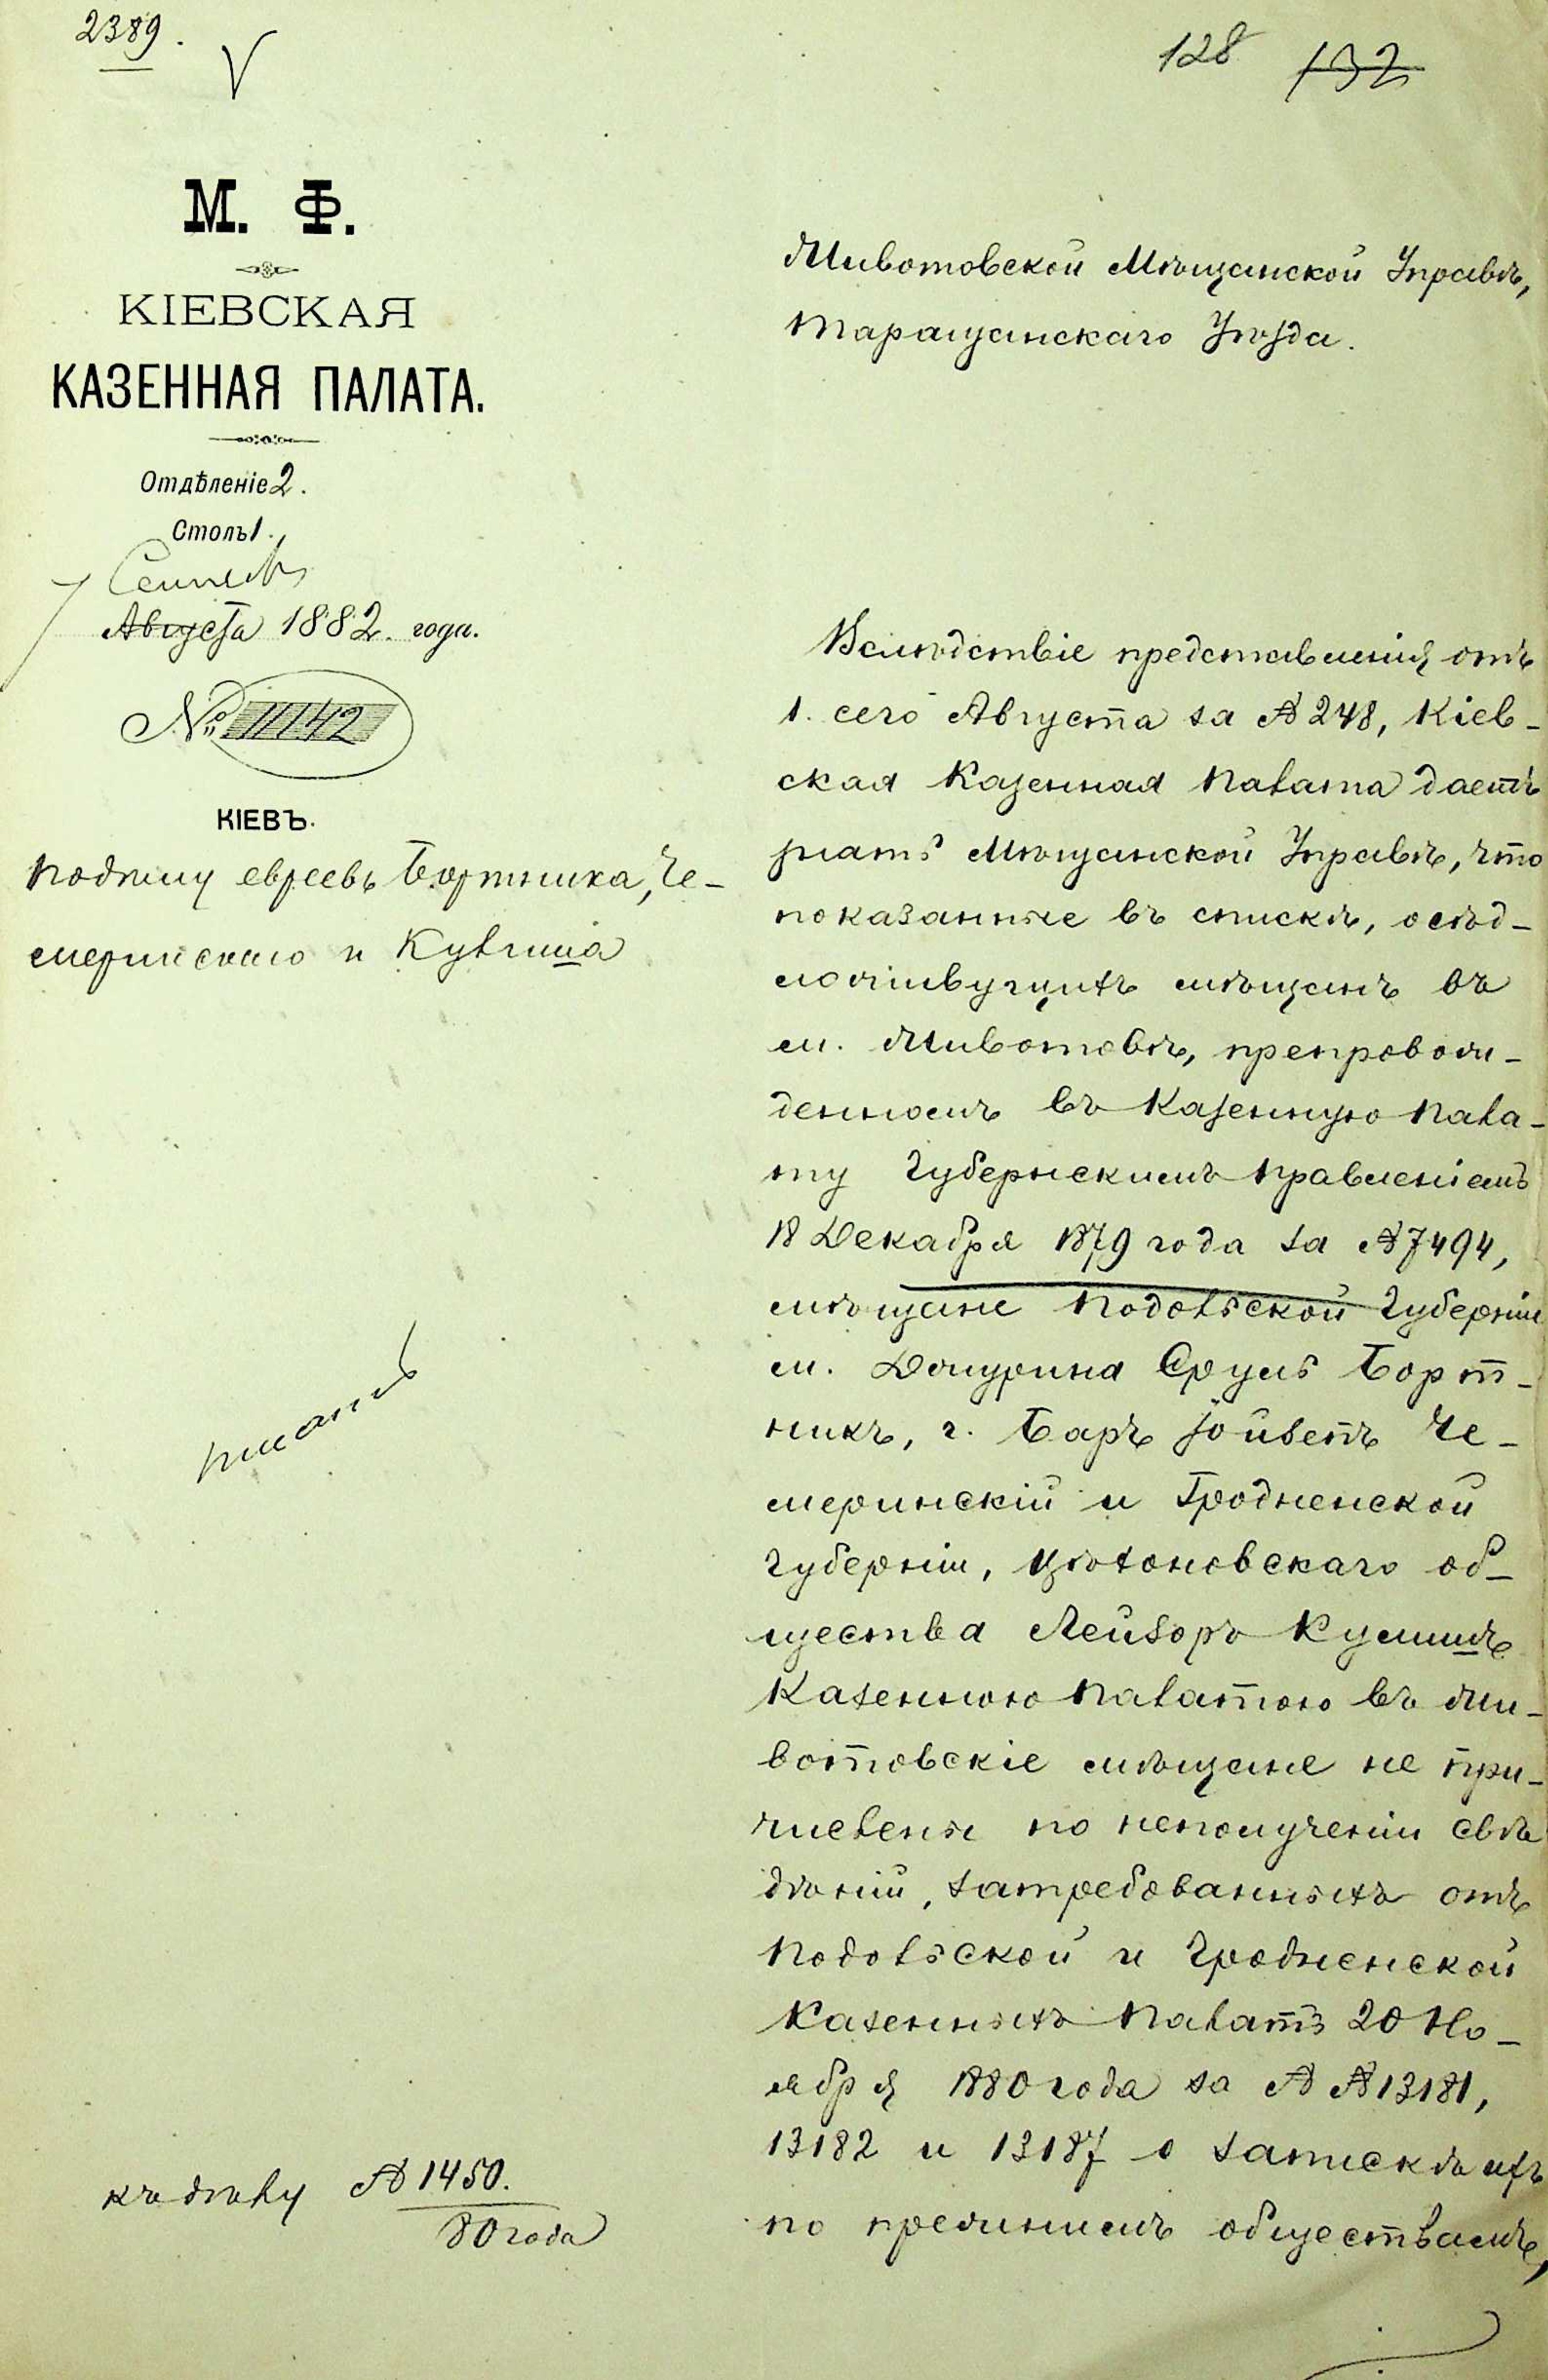 2389.
128 132
М. Ф.
КІЕВСКАЯ
КАЗЕННАЯ ПАЛАТА.
Отдѣленіе 2.
Столъ 1.
7
Августа 1882 года.
№ 11142
КІЕВЪ.
евреевъ Бортника, Че-
меринскаго и
къ дѣлу № 1450.
80 года
Животовской Мѣщанской Управѣ,
Таращанскаго Уѣзда.
Вслѣдствіе представленія отъ
1. сего Августа за № 248, Кіев-
ская Казенная Палата даетъ
знать Мѣщанской Управѣ, что
показанные въ спискѣ, осѣд-
ложивущихъ мѣщанъ въ
м. Животовѣ, препровож-
денномъ въ Казенную Пала-
ту Губернскимъ Правленіемъ
18 Декабря 1879 года за № 7494,
мѣщане Подольской Губерніи
м. Джурина Сруль Борт-
никъ, г. Баръ Че-
меринскій и Гродненской
Губерніи, Цѣхановскаго об-
щества Лейзоръ
Казенною Палатою въ Жи-
вотовскіе мѣщане не при-
числены по неполученіи свѣ
дѣній, затребованныхъ отъ
Подольской и Гродненской
Казенныхъ Палатъ 20 Но-
ября 1880 года за № № 13181,
13182 и 13187 о запискѣ ихъ
по прежнимъ обществамъ,